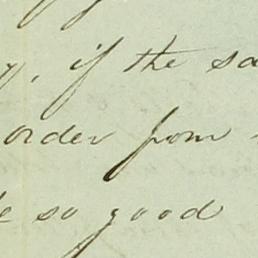 if the
order from
so good